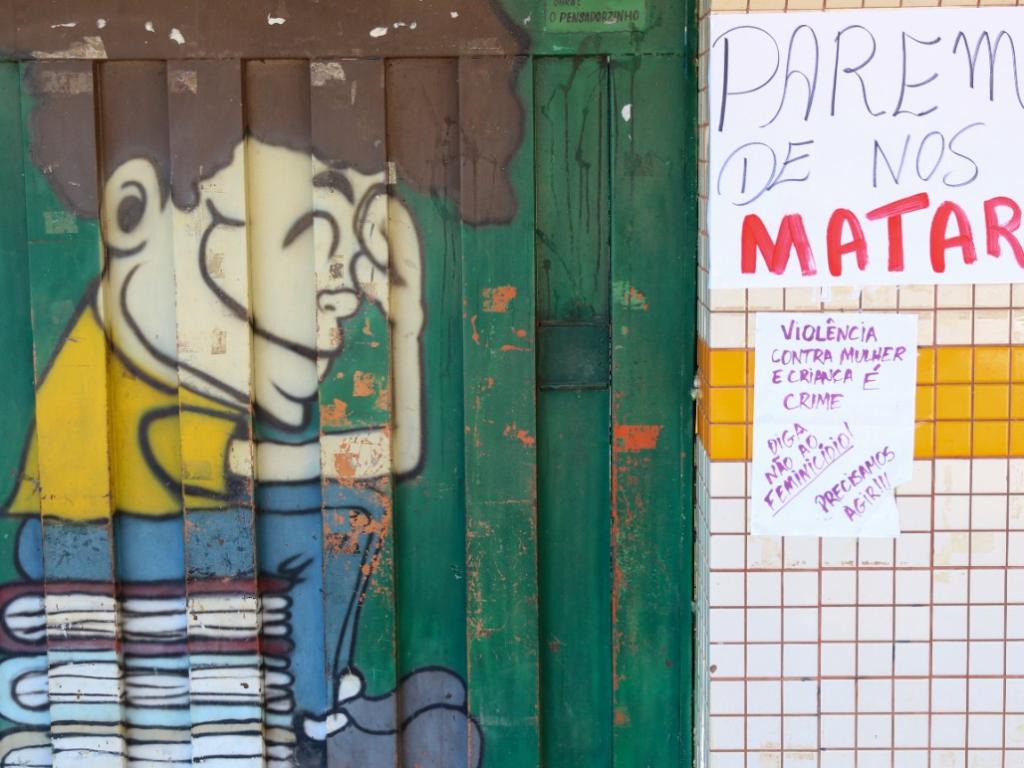 OBRA:
O PENSADORZINHO
PAREM
DE NOS
MATAR
VIOLÊNCIA
CONTRA MULHER
E CRIANÇA É
CRIME
DIGA
NÃO AO
FEMINICÍDIO!
PRECISAMOS
AGIR!!!